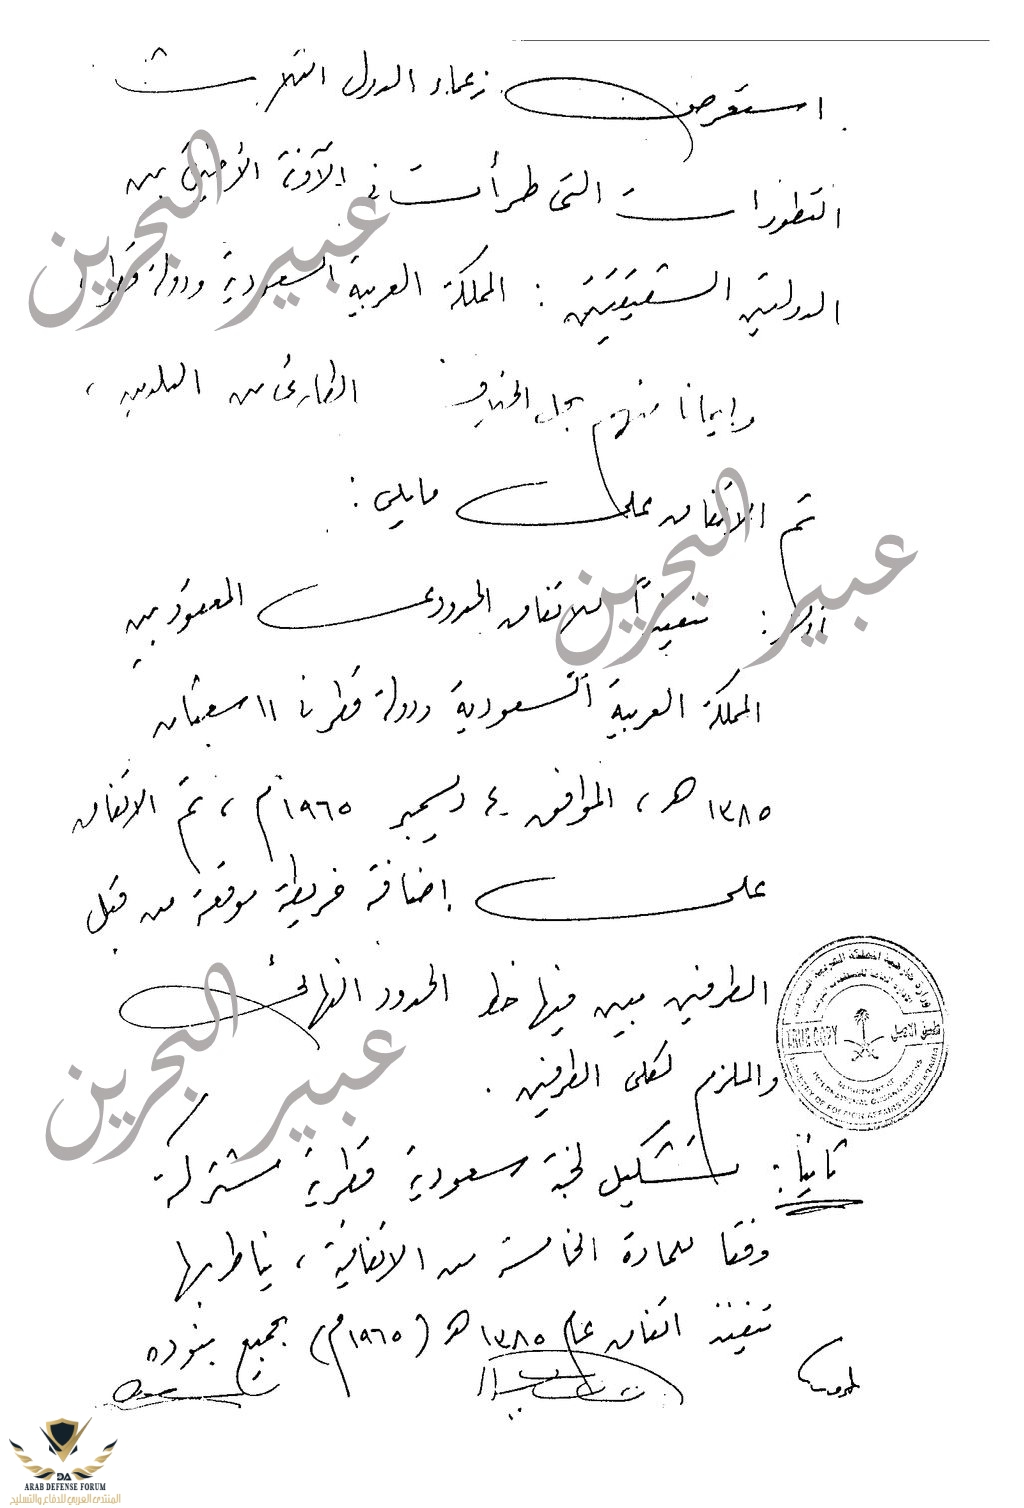 استعرض زعماء الدول الثلاث
التطورات التي طرأت في الآونة الأخيرة بين
الدولتين الشقيقتين : المملكة العربية السعودية ودولة قطر ،
وإيمانا منهم بحل الخلاف الطارئ بين البلدين ،
تم الاتفاق على مايلي :
أولاً : تنفيذاً للاتفاق الحدودي المعقود بين
المملكة العربية السعودية ودولة قطر في ١١ شعبان
١٣٨٥ هـ ، الموافق ٤ ديسمبر ١٩٦٥م ، تم الاتفاق
على إضافة خريطة موقعة من قبل
الطرفين يبين فيها خط الحدود النهائي
والملزم لكلى الطرفين .
ثانياً : تشكيل لجنة سعودية قطرية مشتركة
وفقا للمادة الخامسة من الاتفاقية ، يناط بها
تنفيذ اتفاق عام ١٣٨٥ هـ (١٩٦٥م) بجميع بنوده
طبق الأصل
TRUE COPY
DEPARTMENT OF
INTERNATIONAL ORGANIZATIONS
MINISTRY OF FOREIGN AFFAIRS SAUDI ARABIA
عبير البحرين
عبير البحرين
عبير البحرين
DA
ARAB DEFENSE FORUM
المنتدى العربي للدفاع والتسليح